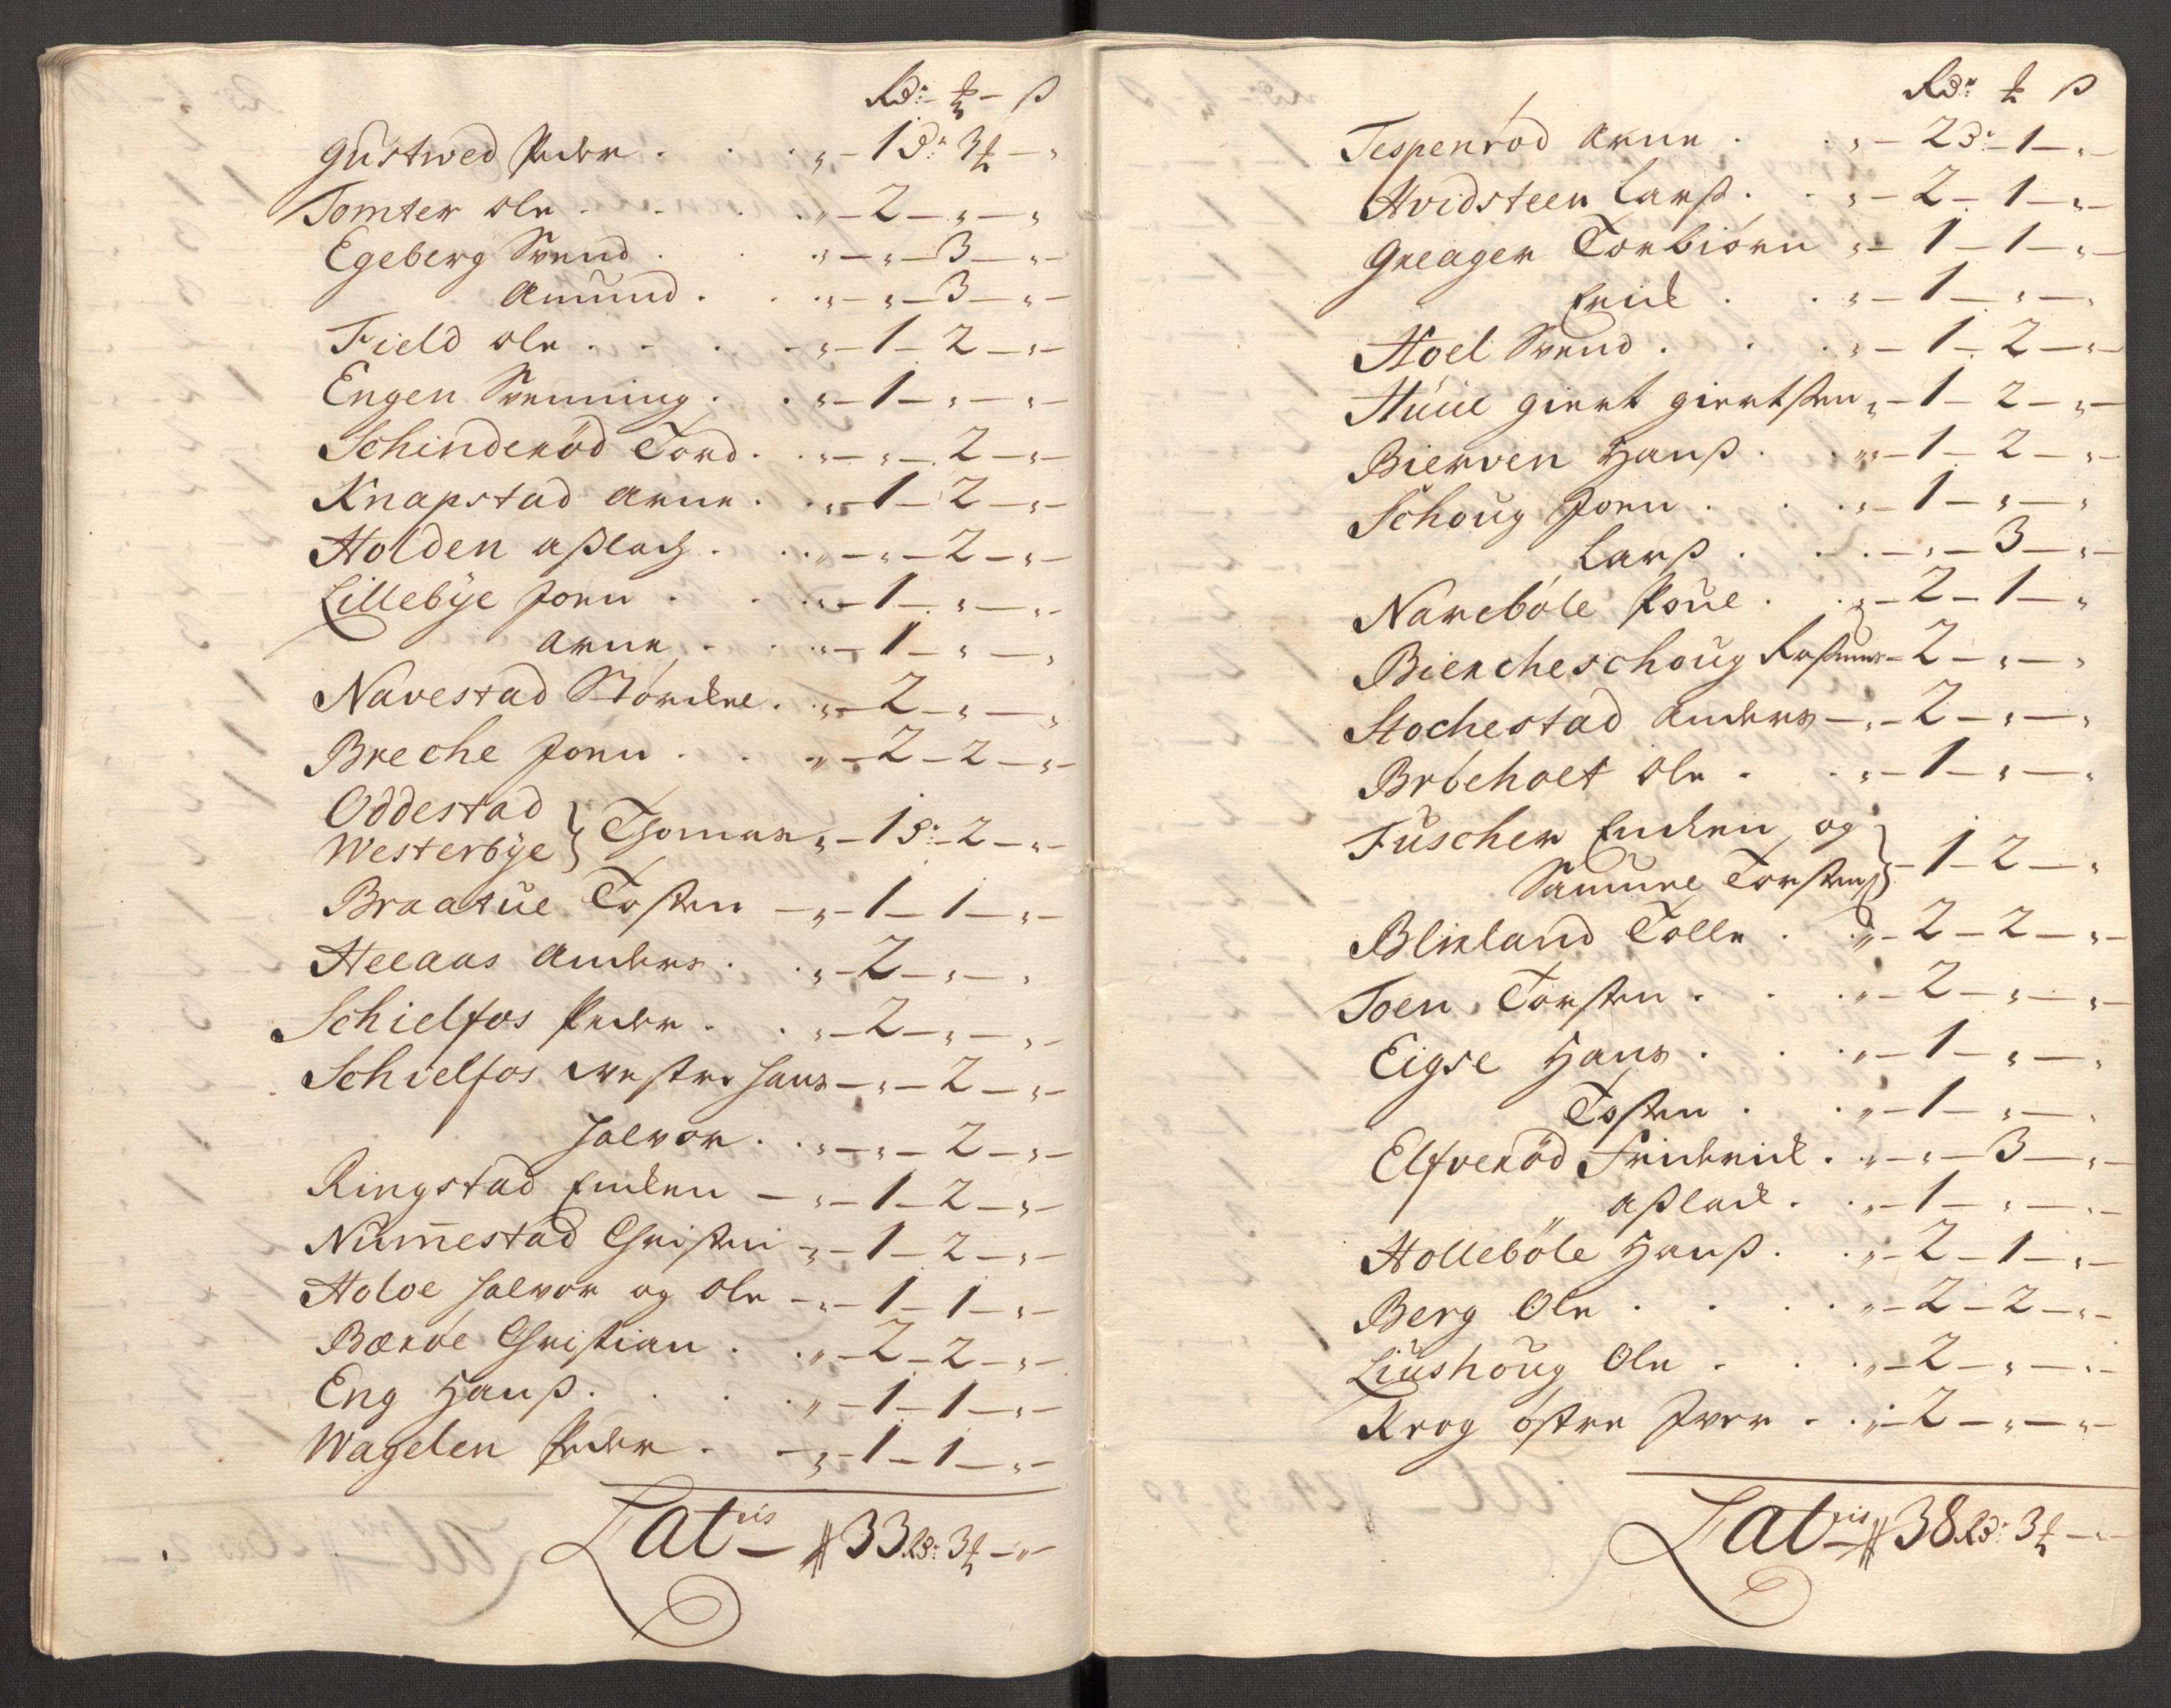 Rdr – ₻ – ß
Gustwed Peder . . . „ – 1 dr 3 ₻ – „
Tomter Ole . . . „ – 2 – „ – „
Egeberg Svend . . „ – „ – 3 – „ –
Amund . . „ – „ – 3 – „ –
Field Ole . . . . „ – 1 – 2 – „ –
Engen Svenning . . „ – 1 – „ – „ –
Schinderöd Tord . . „ – „ – 2 – „ –
Knapstad Arne . . „ – 1 – 2 – „ –
Holden Aßlach . . „ – „ – 2 – „ –
Lillebÿe Joen . . „ – 1 – „ – „ –
Arne . . „ – 1 – „ – „
Navestad Størcker . „ – 2 – „ – „
Breche Joen . . „ – 2 – 2 – „ –
Oddestad
Westerbÿe } Thomas „ – 1 dr – 2 – „ –
Braatue Tosten – „ – 1 – 1 – „ –
Heeaas Anders . . „ – 2 – „ – „
Schielfos Peder . . „ – 2 – „ – „ –
Schielfos westre Hans – „ – 2 – „ –
Halvor . . „ – „ – 2 – „ –
Ringstad Endren – „ – 1 – 2 – „ –
Num̅estad Christen – „ – 1 – 2 – „ –
Holøe Halvor og Ole – „ – 1 – 1 – „ –
Bærøe Christian . . „ – 2 – 2 – „ –
Eng Hanß . . . „ – 1 – 1 – „ –
Wagelen Peder . – „ – 1 – 1 – „ –
Latris – 33 Rdr: 3 ₻ – „ –
Rdr ₻ ß
Tespenrød Arne . . „ – 2 dr – 1 – „ –
Hvidsteen Larß . . „ – 2 – 1 – „ –
Greager Torbiørn „ – 1 – 1 – „ –
Erick . . „ – 1 – „ – „
Hoel Svend . . . „ – 1 – 2 – „ –
Huue Giert Giertsen „ – 1 – 2 – „ –
Bierven Hanß . . „ – 1 – 2 – „ –
Schoug Joen . . . „ – 1 – „ – „
Larß . . . – „ – 3 – „ –
Narebøle Poul . . „ – 2 – 1 – „
Biercheschoug Raßmus – 2 – „ – „
Stochestad Anders – „ – 2 – „ – „
Brøeholt Ole . . „ – 1 – „ – „
Fuscher Endren og
Samuel Torsten } – 1 – 2 – „
Blikland Tolle . „ – 2 – 2 – „ –
Toen Torsten . . . „ – 2 – „ – „ –
Eigse Hans . . . „ – 1 – „ – „
Tosten . . „ – 1 – „ – „
Elfverød Friderick . „ – „ – 3 – „ –
„ Aßlack . . „ – 1 – „ – „ –
Hollebøle Hanß . . „ – 2 – 1 – „ –
Berg Ole . . . . „ – 2 – 2 – „ –
Liushoug Ole . . . „ – 2 – „ – „ –
Krog østre Iver . . „ – 2 – „ – „ –
Latris – 38 Rdr: 3 ₻ – „ –